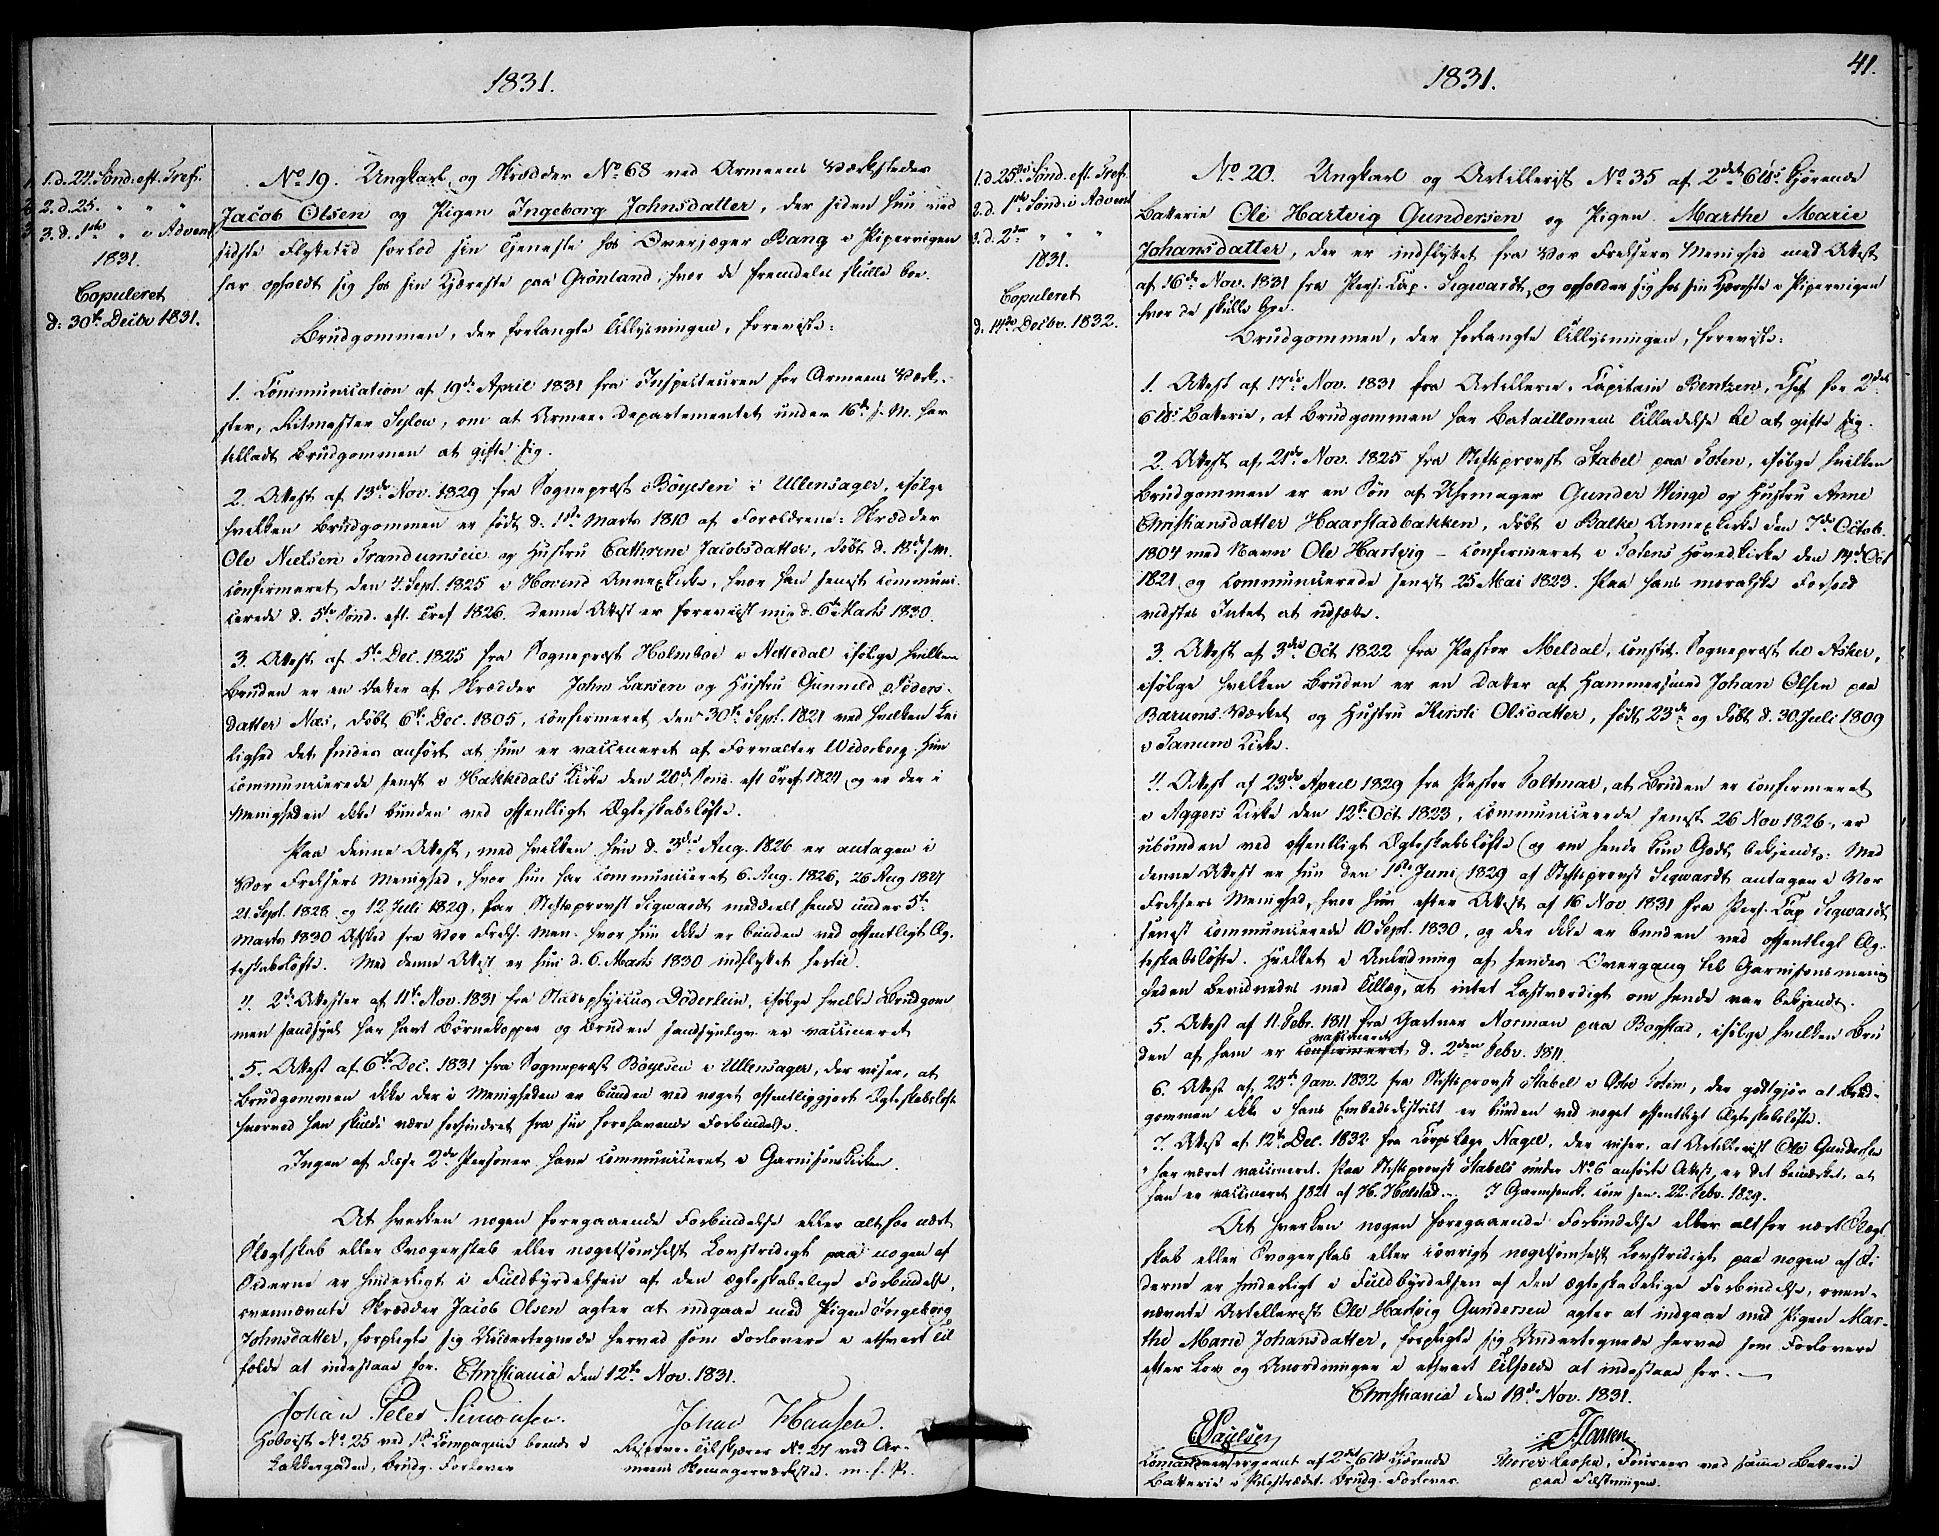 1831.
1. d. 24. Sönd. eft. Tref.
2. d. 25. " " "
3. d. 1ste " i Advent
1831.
Copuleret
d: 30te Decbr 1831.
No 19. Ungkarl og Skrædder No 68 ved Armeens Værksteder
Jacob Olsen og Pigen Ingeborg Johnsdatter, der siden hun ved
sidste Flyttetid forlod sin Tjeneste hos Overjæger Bang i Pipervigen
har opholdt sig hos sin Kjæreste paa Grönland, hvor de fremdeles skulle boe.
Brudgommen, der forlangte Tillysningen, foreviste:
1. Communication af 19de April 1831 fra Inspecteuren for Armeens Værk-
steder, Ritmester Sejlow, om at Armee-Departementet under 16de s. M. har
tilladt Brudgommen at gifte sig.
2. Attest af 13de Nov. 1829 fra Sognepræst Böyesen i Ullensager, ifölge
hvilken Brudgommen er födt d. 1ste Marts 1810 af Forældrene: Skrædder
Ole Nielsen Trandumseie og Hustru Cathrine Jacobsdatter, döbt d. 18de s. M.
confirmeret den 4. Sept. 1825 i Hovind Annexkirke, hvor han senest communi-
cerede d. 5te Sönd. eft. Tref 1826. Denne Attest er foreviist mig d. 6te Marts 1830.
3. Attest af 5te Dec. 1825 fra Sognepræst Holmboe i Nittedal ifölge hvilken
Bruden er en Datter af Skrædder John Larsen og Hustru Gunnild Peders-
datter Næs, döbt 6te Dec. 1805, confirmeret den 30te Sept. 1821 ved hvilken Lei
lighed det findes anfört at hun er vaccineret af Forvalter Wederberg. Hun
communicerede senest i Hakkedals Kirke den 20de Sönd. eft Tref 1824 og er der i
Menigheden ikke bunden ved offentligt Ægteskabslöfte.
Paa denne Attest, med hvilken hun d. 3die Aug. 1826 er antagen i
Vor Frelsers Menighed, hvor hun har communiceret 6. Aug. 1826, 26 Aug 1827
21. Sept. 1828 og 12 Juli 1829, har Stiftsprovst Sigwardt meddeelt hende under 5te
Marts 1830 Afsked fra Vor Frels. Men. hvor hun ikke er bunden ved offentligt Æg-
teskabslöfte. Med denne Attest er hun d. 6. Marts 1830 indflyttet hertil.
4. 2de Attester af 11te Nov. 1831 fra Stadsphysicus Döderlein, ifölge hvilke Brudgom
men har havt Börnekopper og Bruden er vaccineret
5. Attest af 6te Dec. 1831 fra Sognepræst Böyesen i Ullensager, der viser, at
Brudgommen ikke der i Menigheden er bunden ved noget offentliggjort Ægteskabslöfte
hvorved han skulde være forhindret fra sin forehavende Forbindelse.
Ingen af disse 2de Personer have communiceret i Garnisonskirken.
At hverken nogen foregaaende Forbindelse eller altfor nært
Slægtskab eller Svogerskab eller nogetsomhelst Lovstridigt paa nogen af
Siderne er hinderligt i Fuldbyrdelsen af den ægteskabelige Forbindelse,
ovennævnte Skrædder Jacob Olsen agter at indgaae med Pigen Ingeborg
Johnsdatter, forpligte sig Undertegnede herved som Forlovere i ethvert Til
fælde at indestaae for. Christiania den 12te Nov. 1831.
Johan Peter Simonsen. Johan Hansen.
Hoboist No 25 ved 1ste Compagnie boende i Reserve-Tilskjærer No 27 ved Ar-
Lakkegaden, Brudg. Forlover meens Skomagerværksted. m. f. P.
1831.
41.
1. d. 25de Sönd. eft. Tref.
2. d. 1ste Sönd i Advent
3. d. 2den " " "
1831.
Copuleret
d. 14de Decbr. 1832.
No 20. Ungkarl og Artillerist No 35 af 2det 6Uds kjörende
Batterie Ole Hartvig Gundersen og Pigen Marthe Marie
Johansdatter, der er indflyttet fra Vor Frelsers Menighed med Attest
af 16de Nov. 1831 fra Pers. Cap. Sigwardt, og opholder sig hos sin Kjæreste i Pipervigen
hvor de skulle boe.
Brudgommen, der forlangte Tillysningen, foreviste:
1. Attest af 17de Nov. 1831 fra Artillerie-Capitain Bentzen, Chef for 2det
6Uds Batterie, at Brudgommen har Bataillonens Tilladelse til at gifte sig.
2. Attest af 21de Nov. 1825 fra Stiftsprovst Stabel paa Toten, ifölge hvilken
Brudgommen er en Sön af Uhrmager Gunder Winge og Hustru Anne
Christiansdatter Haarstadbakken, döbt i Balke Annexkirke den 7de Octob.
1804 med Navn Ole Hartvig – confirmeret i Totens Hovedkirke den 14de Oct
1821 og communicerede senest 25 Mai 1823. Paa hans moralske Forhold
vidstes Intet at udsætte.
3. Attest af 3die Oct 1822 fra Pastor Meldal, constit. Sognepræst til Asker,
ifölge hvilken Bruden er en Datter af Hammersmed Johan Olsen paa
Bærums-Værket og Hustru Kirsti Olsdatter, födt 23de og döbt d. 30. Juli 1809
i Tanum Kirke.
4. Attest af 23de April 1829 fra Pastor Foltmar, at Bruden er confirmeret
i Aggers Kirke den 12te Oct 1823, communicerede senest 26 Nov 1826, er
ubunden ved offentligt Ægteskabslöfte og om hende kun Godt bekjendt. Med
denne Attest er hun den 1ste Juni 1829 af Stiftsprovst Sigwardt antagen i Vor
Frelsers Menighed, hvor hun efter Attest af 16 Nov 1831 fra Pers. Cap Sigwardt
senest communicerede 10 Sept. 1830, og der ikke er bunden ved offentligt Æg-
teskabslöfte. Hvilket i Anledning af hendes Overgang til Garnisonsmenig
heden bevidnedes med Tillæg, at intet Lastværdigt om hende var bekjendt.
5. Attest af 11. Febr. 1811 fra Gartner Norman paa Bogstad, ifölge hvilken Bru
vaccineret
den af ham er confirmeret d. 2den Febr. 1811.
6. Attest af 25de Jan. 1832 fra Stiftsprovst Stabel i Östre Toten, der godtgjör at Brud-
gommen ikke i hans Embedsdistrikt er bunden ved noget offentligt Ægteskabslöfte.
7. Attest af 12te Dec. 1832 fra Corpslæge Nagel, der viser, at Artillerist Ole Gundersen
har været vaccineret. Paa Stiftsprovst Stabels under No 6 anförte Attest, er det bemærket, at
han er vaccineret 1821 af H. Holstad.– I Garnisonsk. com sen. 22. Febr. 1829.
At hverken nogen foregaaende Forbindelse eller altfor nært Slægt
skab eller Svogerskab eller iövrigt nogetsomhelst Lovstridigt paa nogen af Si
derne er hinderligt i Fuldbyrdelsen af den ægteskabelige Forbindelse, oven-
nævnte Artillerist Ole Hartvig Gundersen agter at indgaae med Pigen Mar-
the Marie Johansdatter, forpligte sig Undertegnede herved som Forlovere
efter Lov og Anordninger i ethvert Tilfælde at indestaae for.
Christiania den 18de Nov. 1831.
E Paulsen T. Larsen
Commandeersergeant af 2det 6Uds kjörende Larsen, Foureer ved samme Batterie
Batterie i Pilestrædet. Brudg. Forlover. paa Fæstningen.